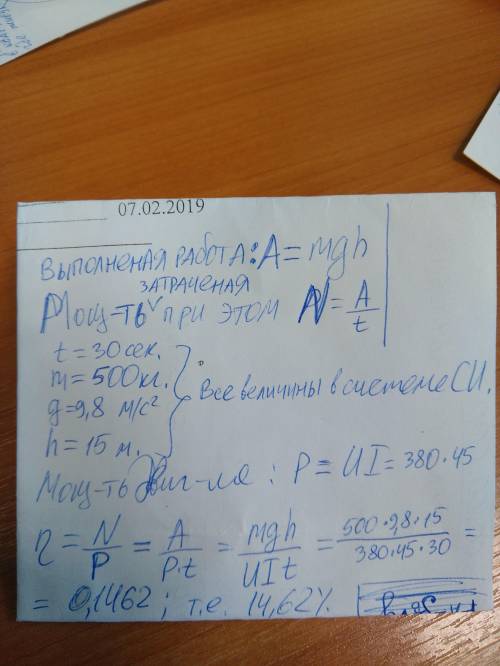 07.02.2019
ВЫПОЛНЕНАЯ РАБОТА: A = mgh
ЗАТРАЧЕНАЯ
Мощ-ть ПРИ ЭТОМ N = A/t
t = 30 сек.
m = 500 кг.
g = 9,8 м/с²
h = 15 м.
Все величины в системе СИ.
Мощ-ть Двиг-ля : P = UI = 380·45
η = N/P = A/P·t = mgh/UIt = 500·9,8·15/380·45·30 =
= 0,1462 ; т.е. 14,62%.